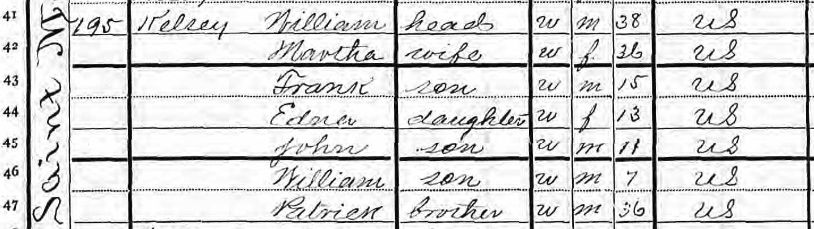 Saint M
41 195 Kelsey William head w m 38 US
42 Martha wife w f 36 US
43 Frank son w m 15 US
44 Edna daughter w f 13 US
45 John son w m 11 US
46 William son w m 7 US
47 Patrick brother w m 36 US